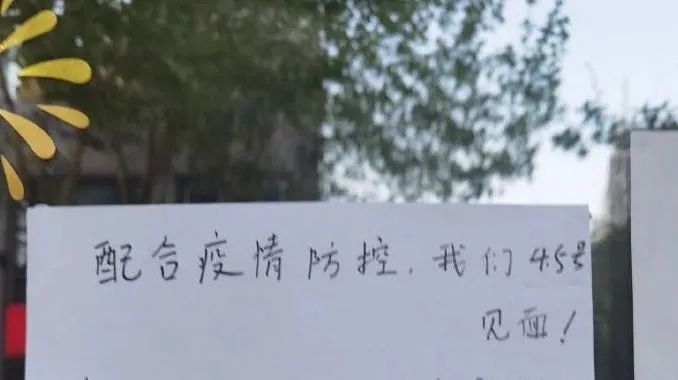 配合疫情防控,我们4.5号
见面!